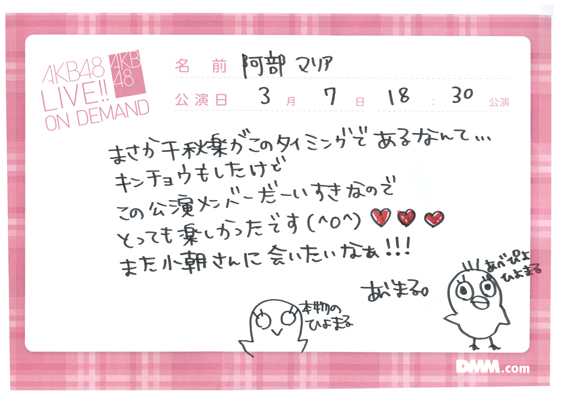 AKB48
LIVE!!
ON DEMAND
AKB
48
名前 阿部 マリア
公演日 3月 7日 18:30 公演
まさか千秋楽がこのタイミングであるなんて...
キンチョウもしたけど
この公演メンバーだーいすきなので
とっても楽しかったです(^o^)
また小朝さんに会いたいなぁ!!!
あべまる。
あべぴよ
ひよまる
本物の
ひよまる
DMM.com